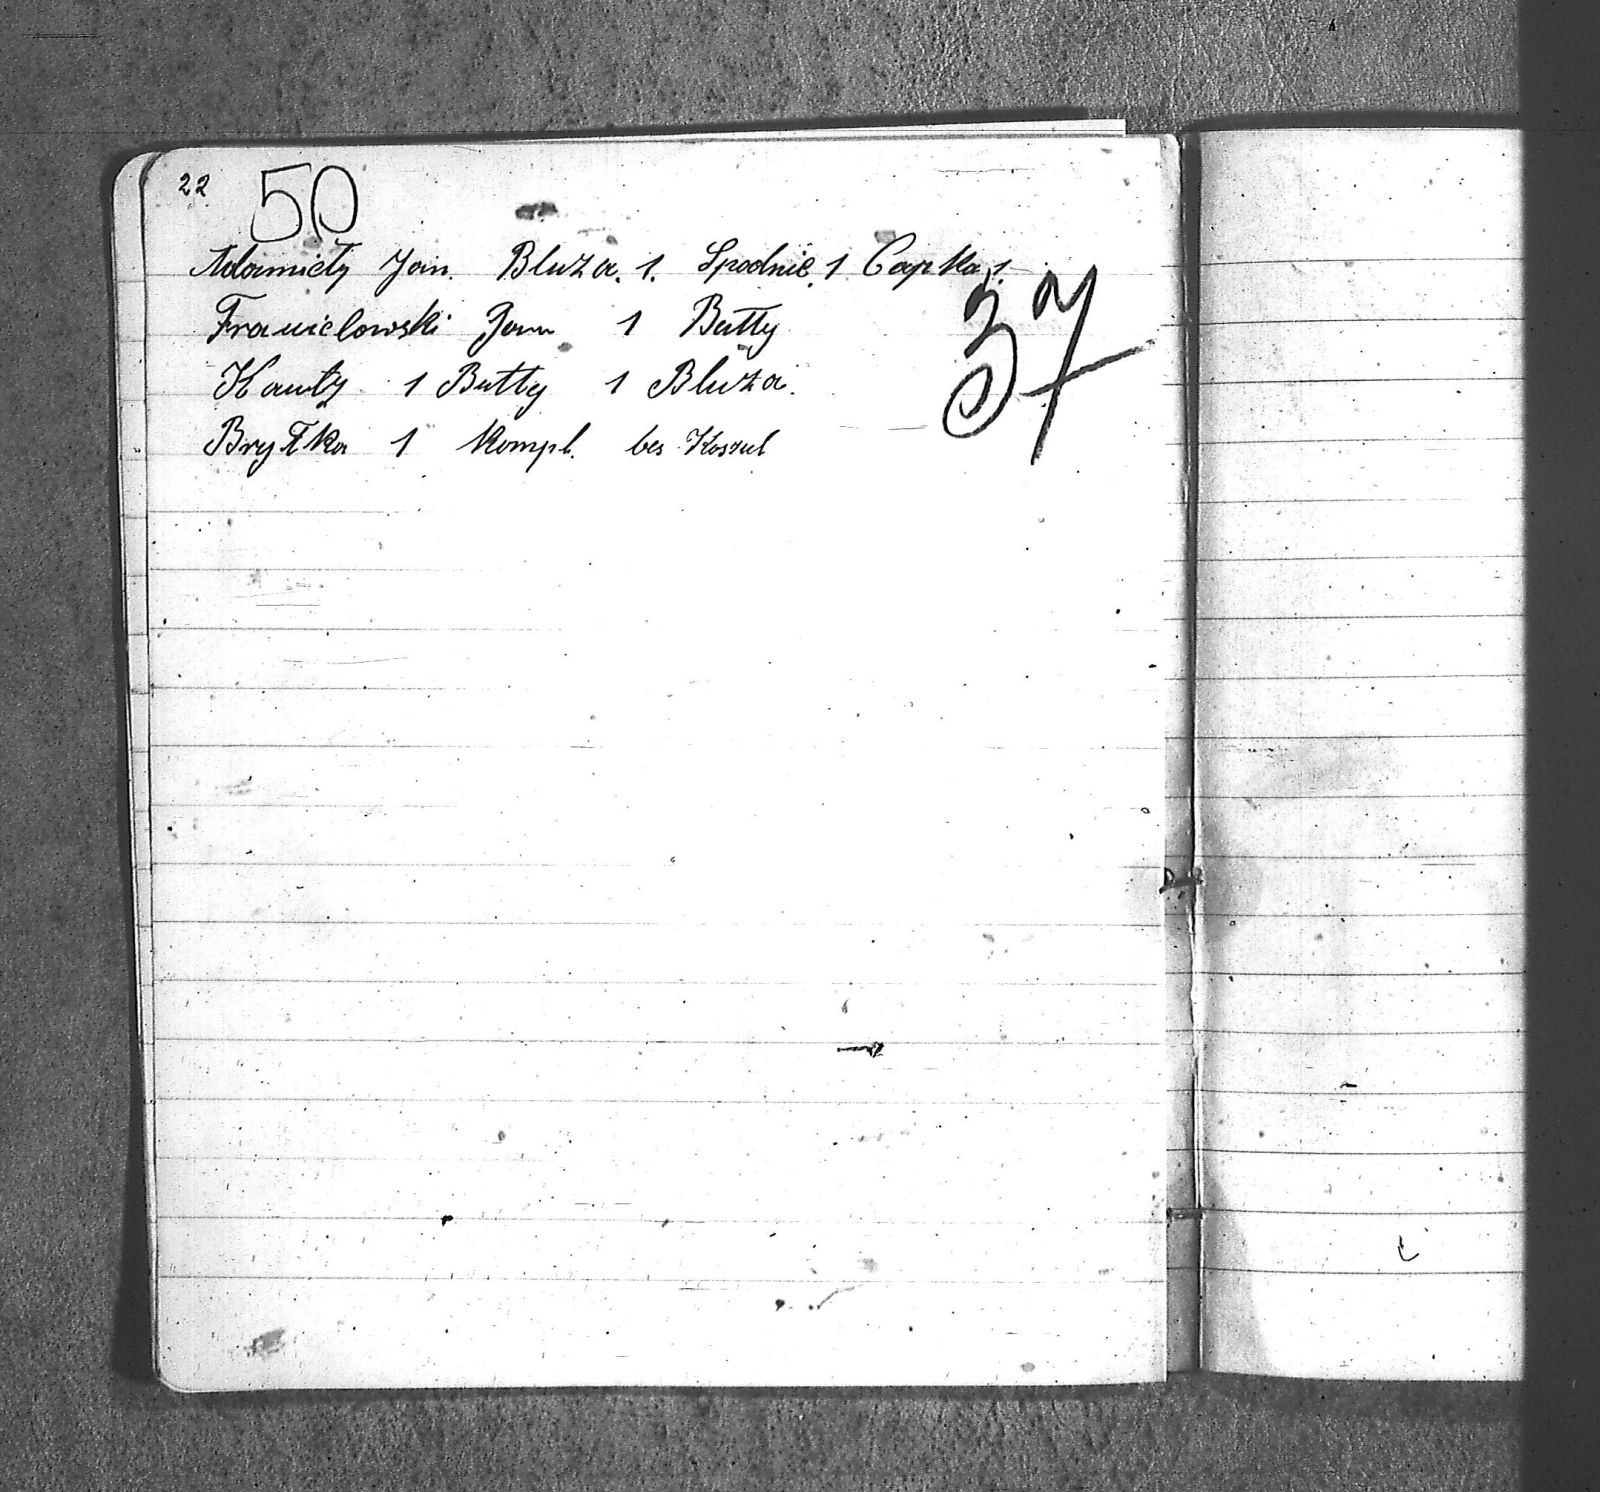 22 50
Adamicty Jan. Bluza. 1. Spodnie. 1 Capka. 1
Franielowski Jan 1 Butty
37
Kauty 1 Butty 1 Bluza.
Bryłka 1 Kompl. bes Koszul